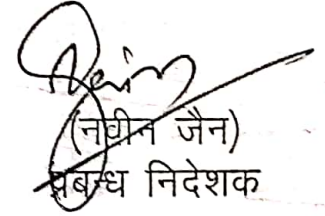 (नवीन जैन)
प्रबन्ध निदेशक